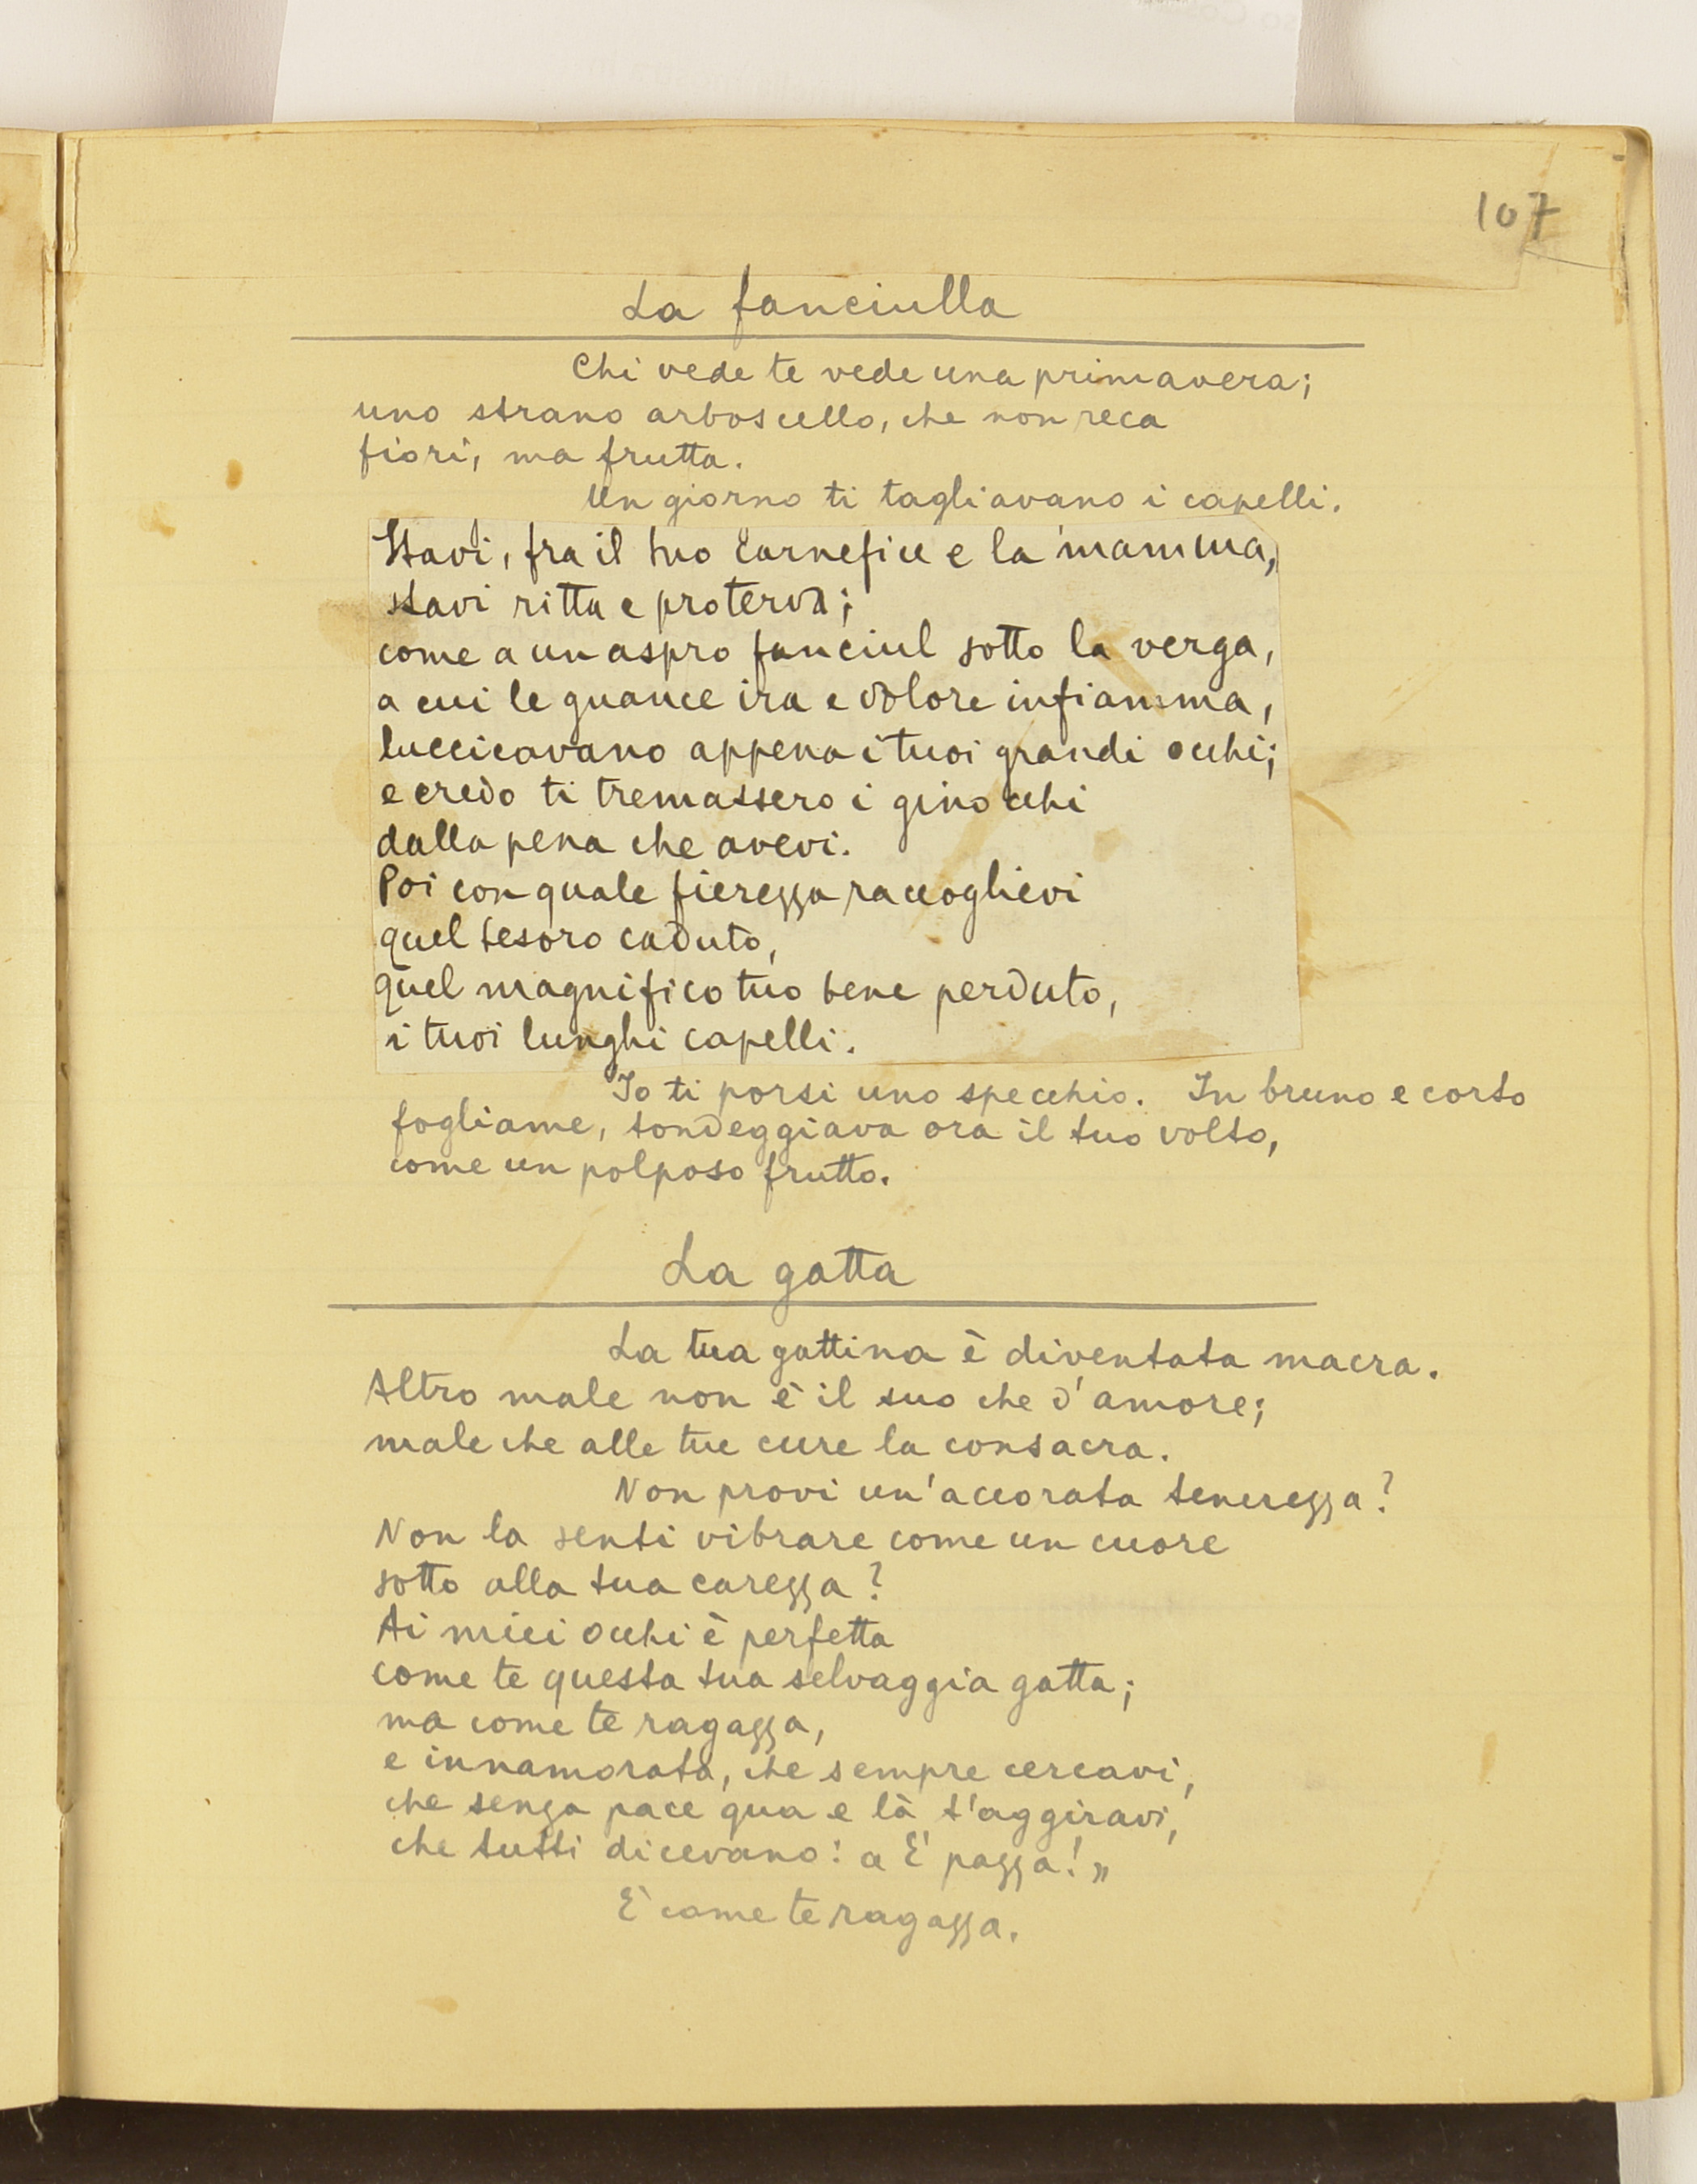 107
La fanciulla
Chi vede te vede una primavera;
uno strano arboscello, che non reca
fiori, ma frutta.
Un giorno ti tagliavano i capelli.
Stavi, fra il tuo carnefice e la mamma,
stavi ritta e proterva;
come a un aspro fanciul sotto la verga,
a cui le guance ira e dolore infiamma,
luccicavano appena i tuoi grandi occhi;
e credo ti tremassero i ginocchi
dalla pena che avevi.
Poi con quale fierezza raccoglievi
quel tesoro caduto,
quel magnifico tuo bene perduto,
i tuoi lunghi capelli.
Io ti porsi uno specchio. In bruno e corto
fogliame, tondeggiava ora il tuo volto,
come un polposo frutto.
La gatta
La tua gattina è diventata macra.
Altro male non è il suo che d'amore;
male che alle tue cure la consacra.
Non provi un'accorata tenerezza?
Non la senti vibrare come un cuore
sotto alla tua carezza?
Ai miei occhi è perfetta
come te questa tua selvaggia gatta;
ma come te ragazza,
e innamorata, che sempre cercavi,
che senza pace qua e là t'aggiravi,
che tutti dicevano: « È pazza! »
È come te ragazza.